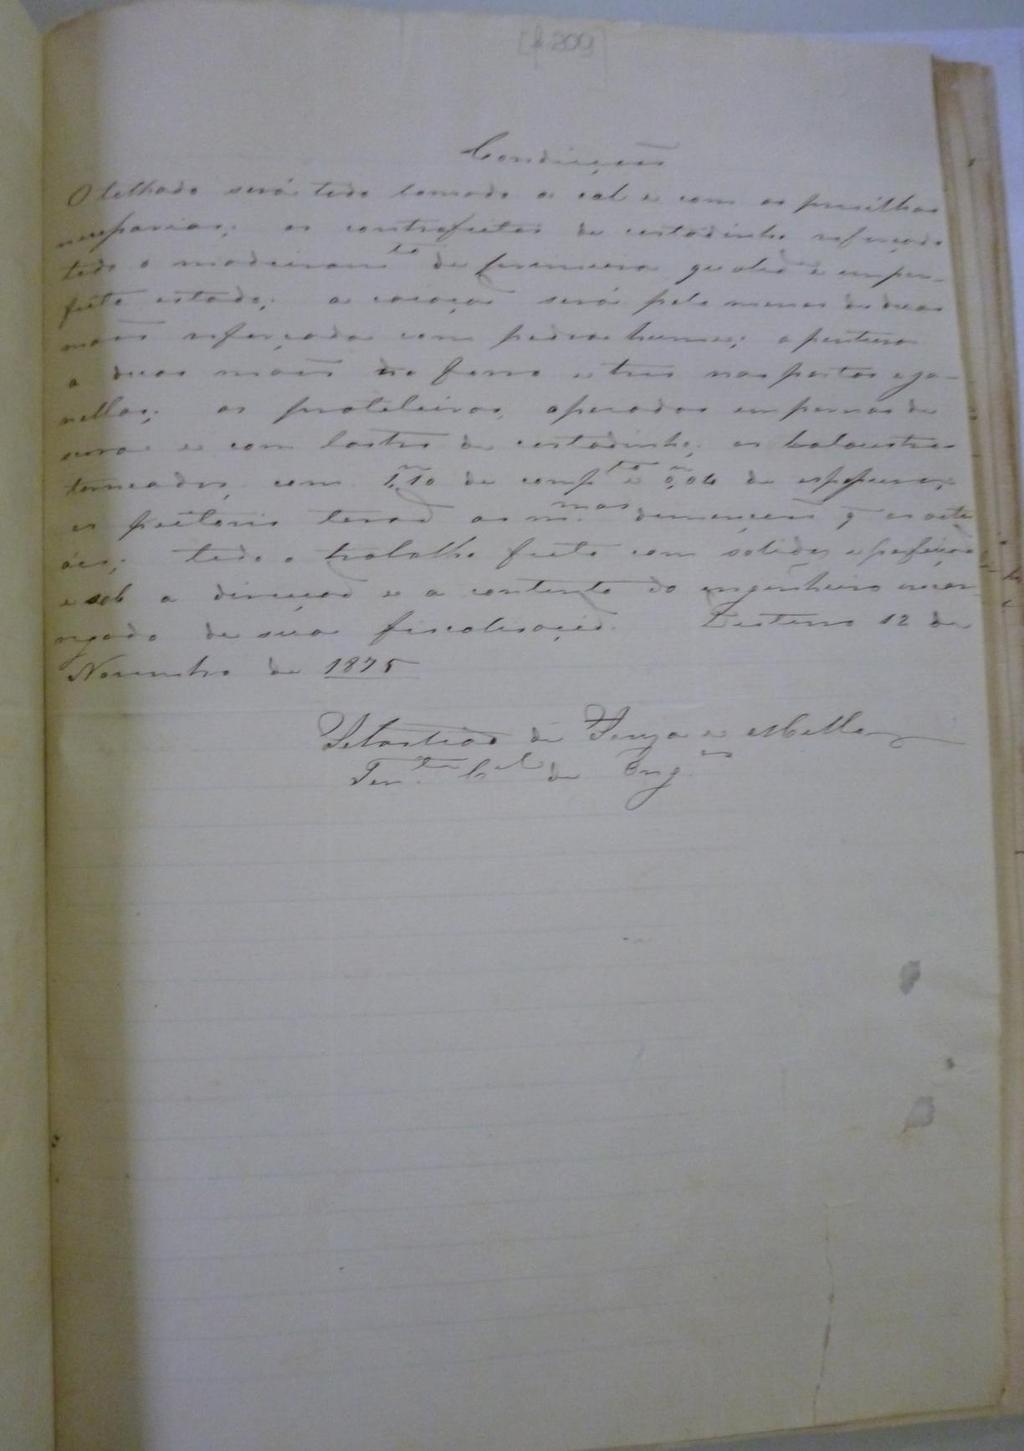 [f 209]
Condicções
O telhado será todo tomado a cal e com as presilhas
necessarias; os contrafeitos de costadinho reforçado
todo o madeiram.to de primeira qualid.e e em per-
feito estado; a caiação será pelo menos de duas
mãos reforçada com pedra hume; a pintura
a duas mãos no forro e tres nas portas e ja-
nellas; as prateleiras, aperadas em pernas de
serra e com lastro de costadinho; os balaustres
torneados, com 1,m10 de comp.to e 0,m04 de espessura;
os peitoris terão as m.mas dimenções q os actu
áes; todo o trabalho feito com solidez e perfeição
e sob a direcção e a contento do engenheiro encar
regado de sua fiscalisação. Desterro 12 de
Novembro de 1875
Sebastião de Souza e Mello
Ten.te C.el de Eng.os